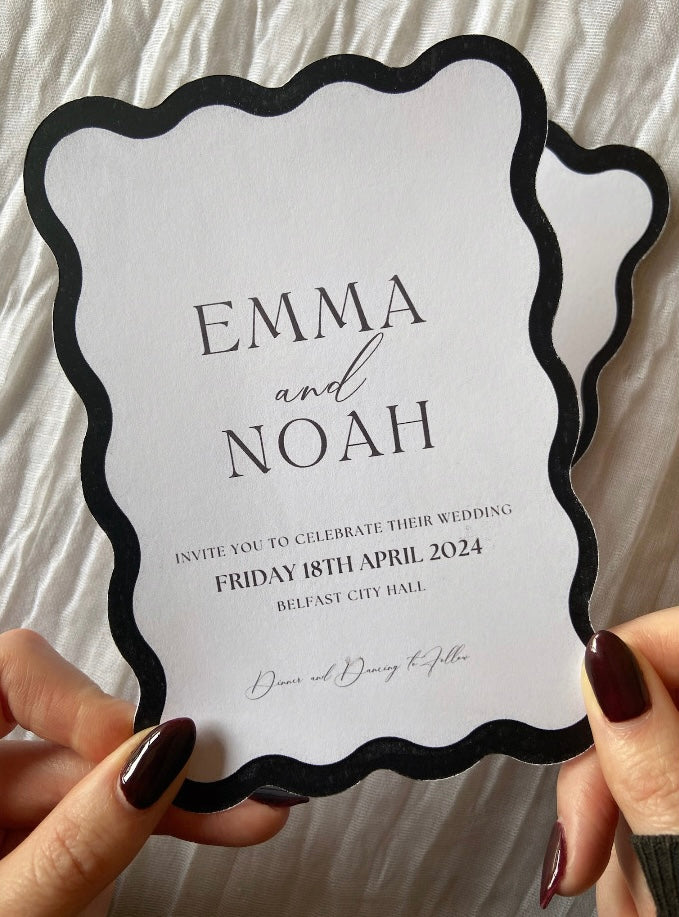 EMMA
and
NOAH
INVITE YOU TO CELEBRATE THEIR WEDDING
FRIDAY 18TH APRIL 2024
BELFAST CITY HALL
Dinner and Dancing to Follow